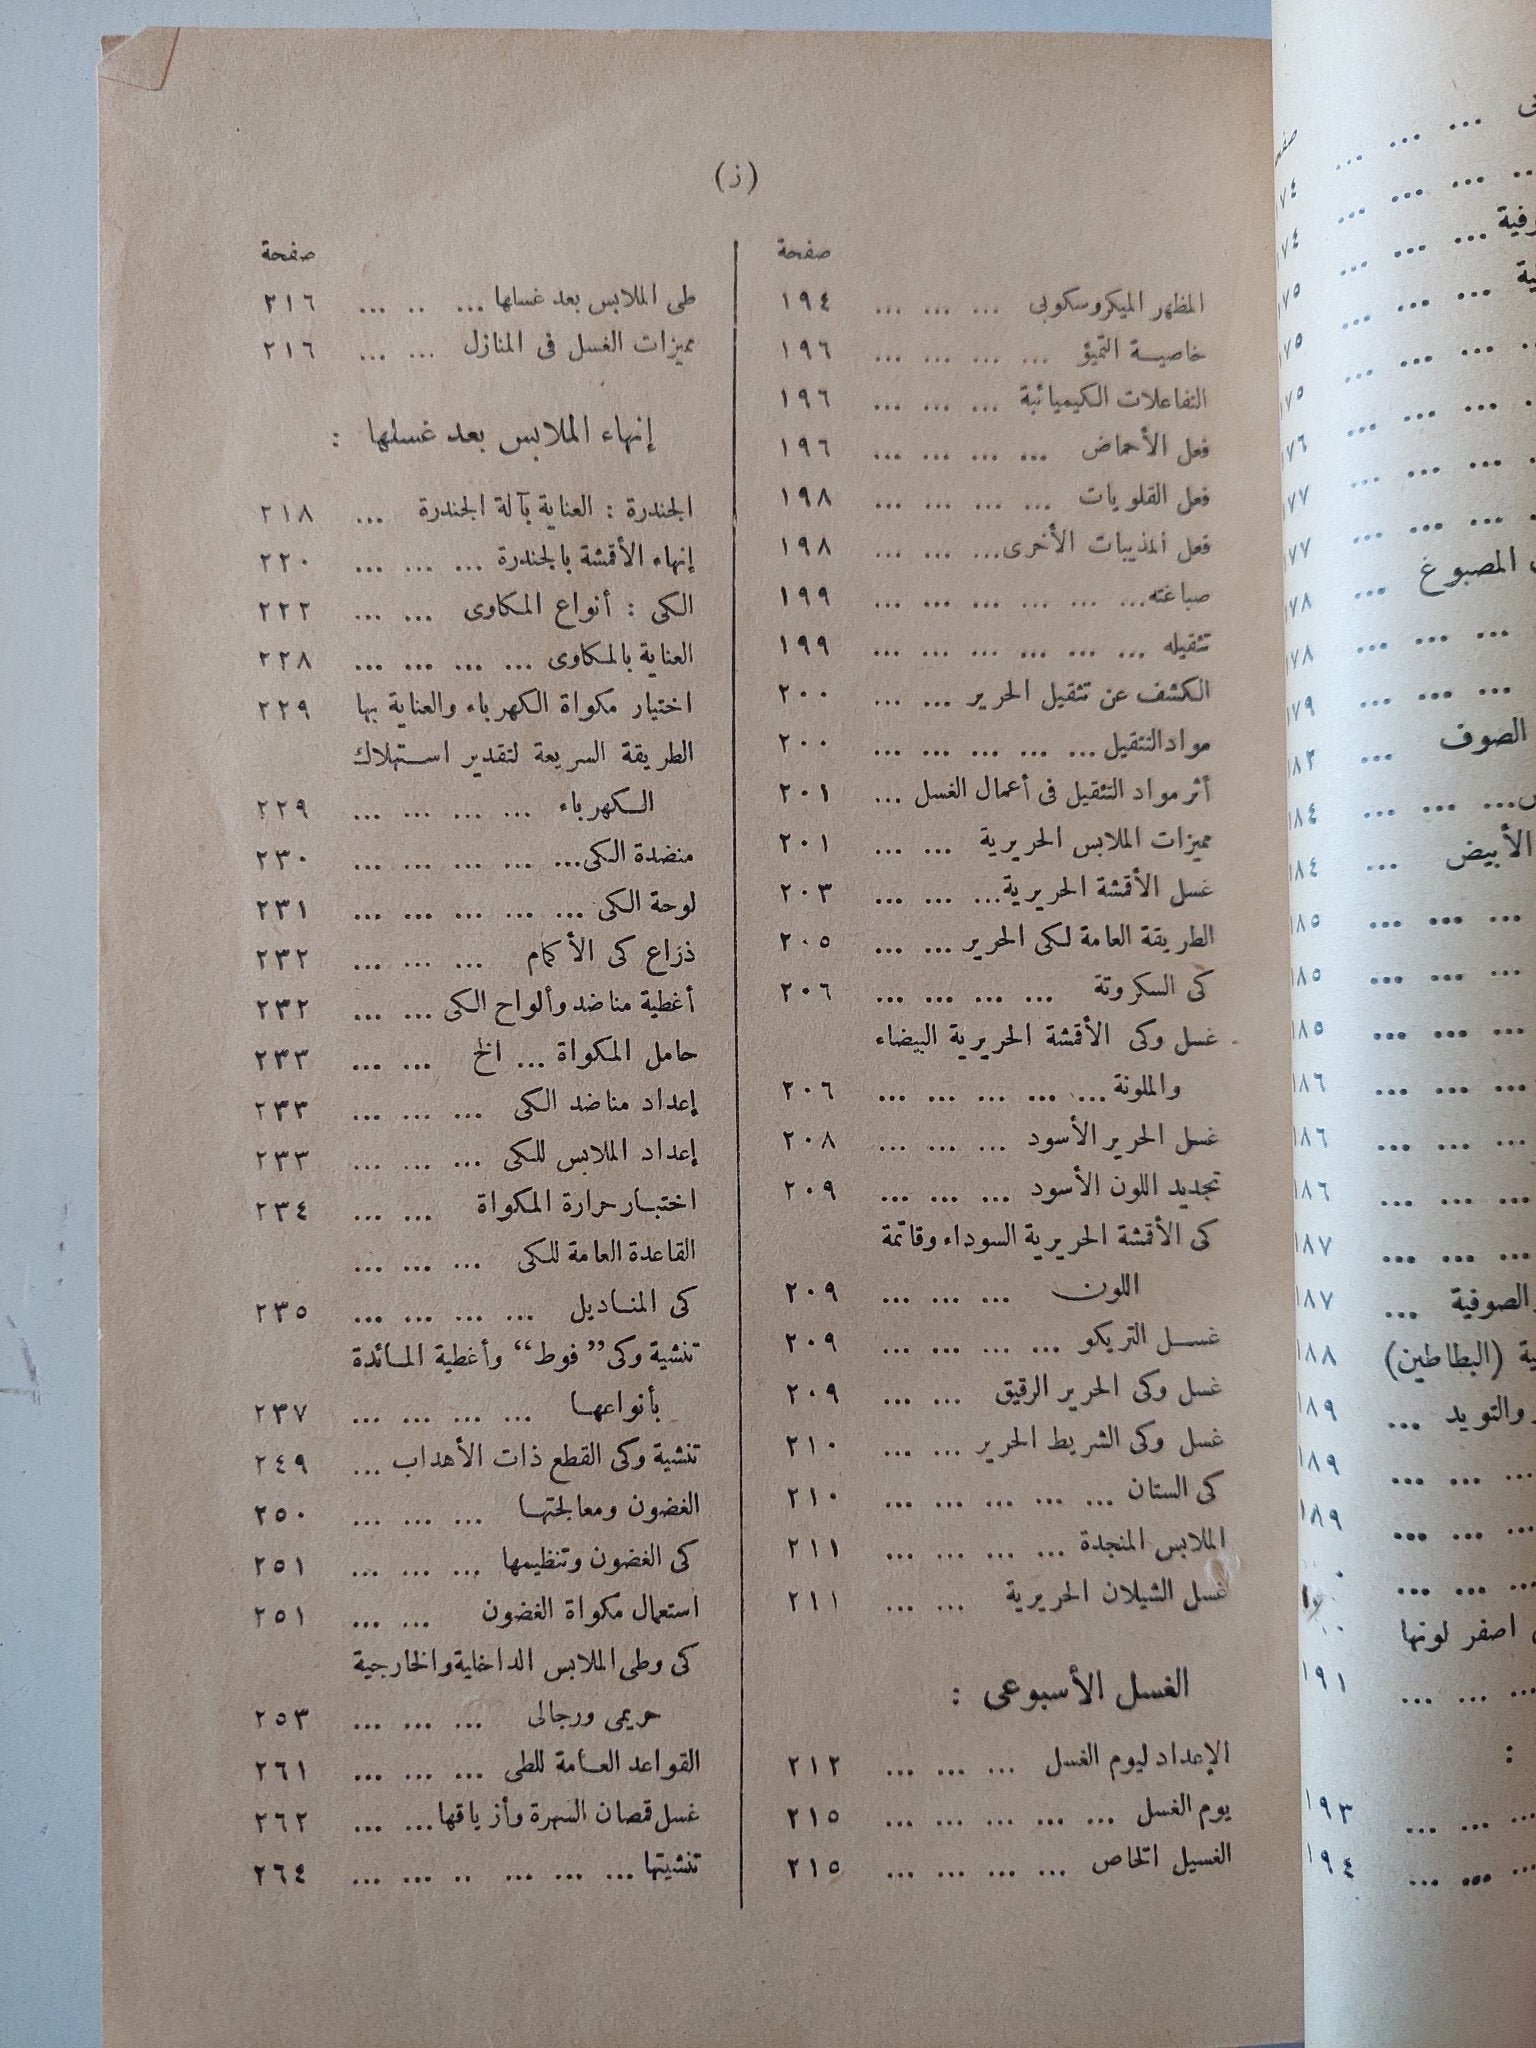 (ز)
صفحة
المظهر الميكروسكوبى ... ... ... ١٩٤
خاصية التميؤ ... ... ... ... ١٩٦
التفاعلات الكيميائية ... ... ... ١٩٦
فعل الأحماض ... ... ... ... ١٩٦
فعل القلويات ... ... ... ... ١٩٨
فعل المذيبات الأخرى ... ... ... ١٩٨
صباغته ... ... ... ... ... ... ١٩٩
تثقيله ... ... ... ... ... ... ١٩٩
الكشف عن تثقيل الحرير ... ... ٢٠٠
مواد التثقيل ... ... ... ... ... ٢٠٠
أثر مواد التثقيل فى أعمال الغسل ... ٢٠١
مميزات الملابس الحريرية ... ... ٢٠١
غسل الأقمشة الحريرية ... ... ... ٢٠٣
الطريقة العامة لكى الحرير ... ... ٢٠٥
كى السكروتة ... ... ... ... ٢٠٦
غسل وكى الأقمشة الحريرية البيضاء
والملونة ... ... ... ... ... ٢٠٦
غسل الحرير الأسود ... ... ... ٢٠٨
تجديد اللون الأسود ... ... ... ٢٠٩
كى الأقمشة الحريرية السوداء وقاتمة
اللون ... ... ... ٢٠٩
غسل التريكو ... ... ... ... ٢٠٩
غسل وكى الحرير الرقيق ... ... ٢٠٩
غسل وكى الشريط الحرير ... ... ٢١٠
كى الستان ... ... ... ... ... ٢١٠
الملابس المنجدة ... ... ... ... ٢١١
غسل الشيلان الحريرية ... ... ٢١١
الغسل الأسبوعى :
الإعداد ليوم الغسل ... ... ... ٢١٢
يوم الغسل ... ... ... ... ... ٢١٥
الغسيل الخاص ... ... ... ... ٢١٥
صفحة
طى الملابس بعد غسلها ... .. ... ٢١٦
مميزات الغسل فى المنازل ... ... ٢١٦
إنهاء الملابس بعد غسلها :
الجندرة : العناية بآلة الجندرة ... ٢١٨
إنهاء الأقمشة بالجندرة ... ... ... ٢٢٠
الكى : أنواع المكاوى ... ... ٢٢٢
العناية بالمكاوى ... ... ... ... ٢٢٨
اختيار مكواة الكهرباء والعناية بها ٢٢٩
الطريقة السريعة لتقدير استهلاك
الكهرباء ... ... ... ... ٢٢٩
منضدة الكى ... ... ... ... ... ٢٣٠
لوحة الكى ... ... ... ... ... ٢٣١
ذراع كى الأكمام ... ... ... ٢٣٢
أغطية مناضد وألواح الكى ... ... ٢٣٢
حامل المكواة ... الخ ... ... ٢٣٣
إعداد مناضد الكى ... ... ... ٢٣٣
إعداد الملابس للكى ... ... ... ٢٣٣
اختبار حرارة المكواة ... ... ٢٣٤
القاعدة العامة للكى ... ... ...
كى المناديل ... ... ... ... ٢٣٥
تنشية وكى ”فوط“ وأغطية المائدة
بأنواعها ... ... ... ... ٢٣٧
تنشية وكى القطع ذات الأهداب ... ٢٤٩
الغضون ومعالجتها ... ... ... ٢٥٠
كى الغضون وتنظيمها ... ... ... ٢٥١
استعمال مكواة الغضون ... ... ٢٥١
كى وطى الملابس الداخلية والخارجية
حريمى ورجالى ... ... ... ٢٥٣
القواعد العامة للطى ... ... ... ٢٦١
غسل قمصان السهرة وأزياقها ... ... ٢٦٢
تنشيتها ... ... ... .. ... ... ٢٦٤
المصبوغ ... ١٧٨
الصوف ... ١٨٢
الأبيض ... ١٨٤
الصوفية ... ١٨٧
(البطاطين) ١٨٨
والتويد ... ١٨٩
اصفر لونها
... ... ... ١٩١
:
... ... ... ١٩٣
... ... ... ١٩٤